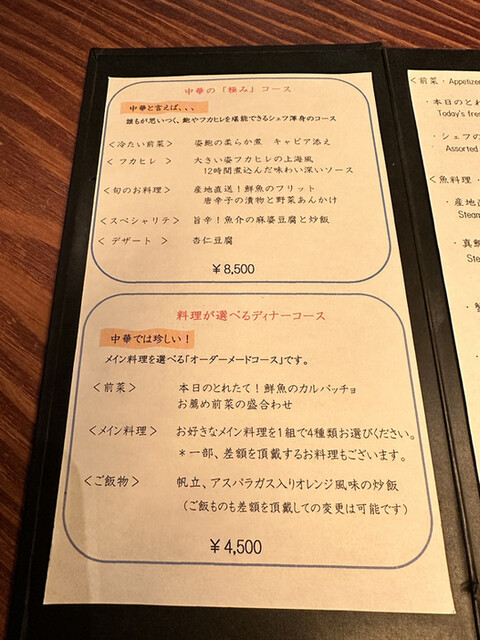 中華の「極み」コース
中華と言えば、、、
誰もが思いつく、鮑やフカヒレを堪能できるシェフ渾身のコース
<冷たい前菜> 姿鮑の柔らか煮 キャビア添え
<フカヒレ> 大きい姿フカヒレの上海風
12時間煮込んだ味わい深いソース
<旬のお料理> 産地直送！鮮魚のフリット
唐辛子の漬物と野菜あんかけ
<スペシャリテ> 旨辛！魚介の麻婆豆腐と炒飯
<デザート> 杏仁豆腐
￥8,500
料理が選べるディナーコース
中華では珍しい！
メイン料理を選べる「オーダーメードコース」です。
<前菜> 本日のとれたて！鮮魚のカルパッチョ
お薦め前菜の盛合わせ
<メイン料理> お好きなメイン料理を1組で4種類お選びください。
＊一部、差額を頂戴するお料理もございます。
<ご飯物> 帆立、アスパラガス入りオレンジ風味の炒飯
（ご飯ものも差額を頂戴しての変更は可能です）
￥4,500
<前菜・Appetizer
・本日のとれ
Today's fres
・シェフの
Assorted
<魚料理・
・産地
Steam
・真鯛
Ste
・蟹